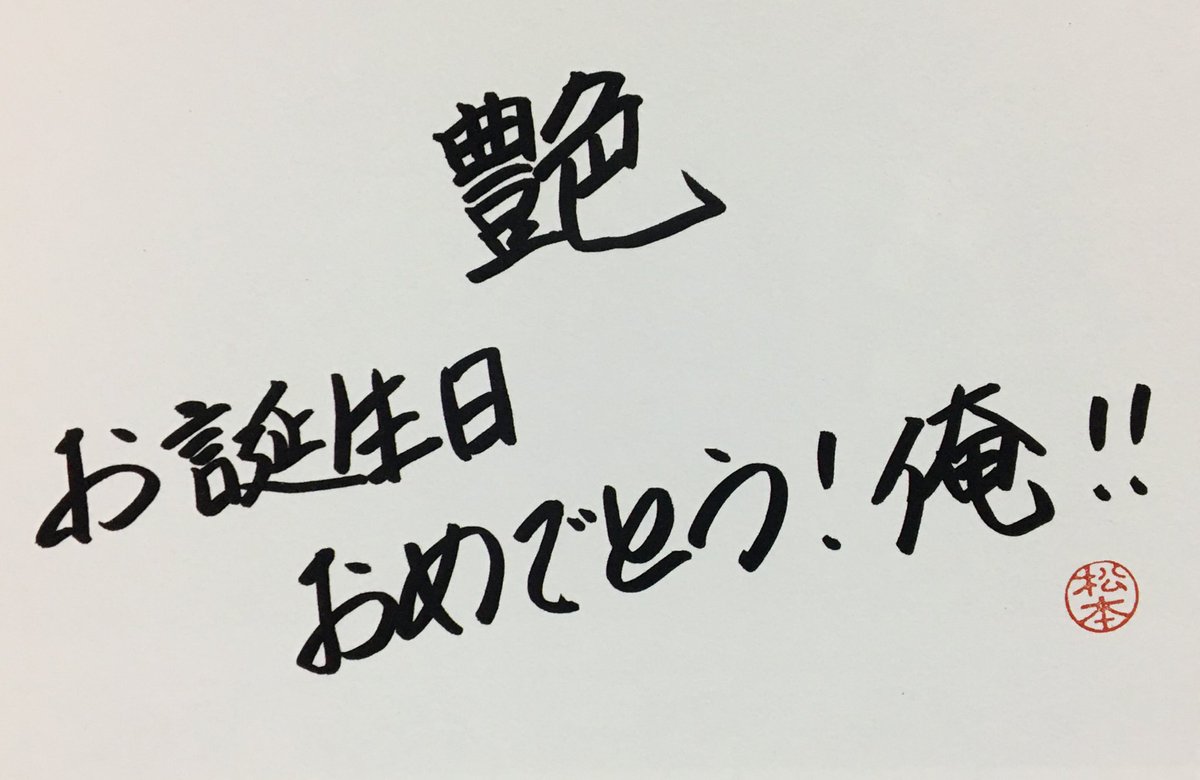 艶
お誕生日
おめでとう!俺!!
松本